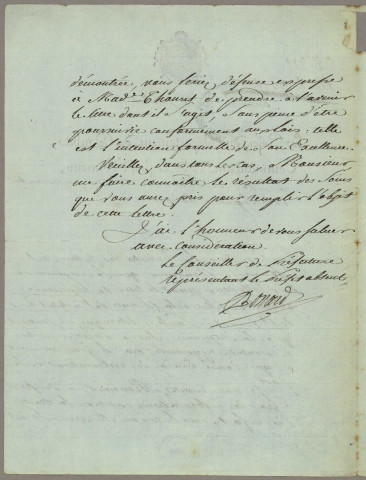 démontrée, vous feriez défense expresse
à Mad.e de prendre à l'avenir
le titre dont il s'agit, sous peine d'être
poursuivie conformément aux lois: telle
est l'intention formelle de Son Excellence.
Veuillez, dans tous les cas, Monsieur
me faire connaître le résultat des soins
que vous aurez pris pour remplir l'objet
de cette lettre.
J'ai l'honneur de vous saluer
avec considération
Le Conseiller de Préfecture
représentant le Préfet absent,